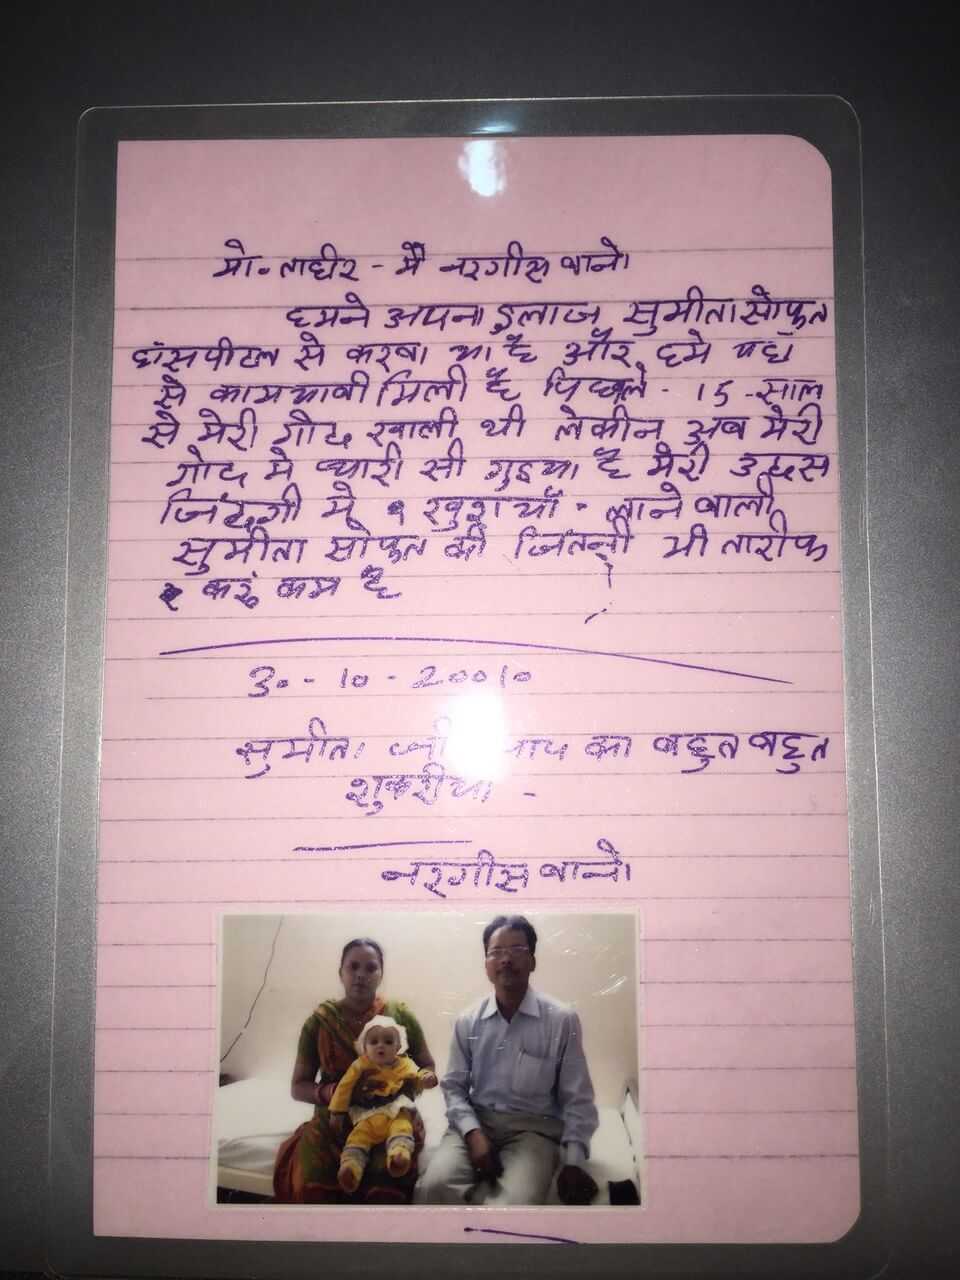 मो. ताहीर - मैं नरगीस बानो
हमने अपना इलाज सुमीता सोफत
हॉसपीटल से करवाया है और हमे यहाँ
से कामयाबी मिली है पिछले - 15 - साल
से मेरी गोद खाली थी लेकीन अब मेरी
गोद मे प्यारी सी गुड़या है मेरी उदास
जिंदगी मे खुशयाँ - लाने वाली
सुमीता सोफत की जितनी भी तारीफ
करूं कम है
30 - 10 - 20010
सुमीता जी आप का बहुत बहुत
शुकरीया -
नरगीस बानो